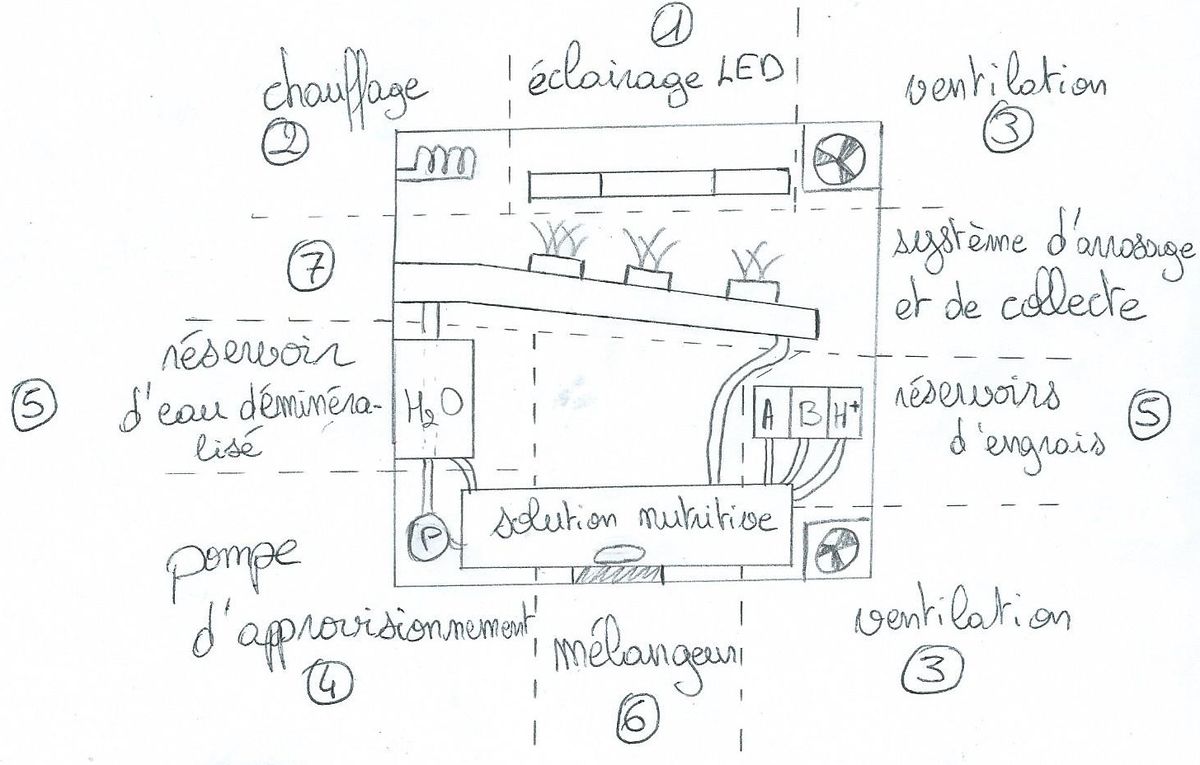 1
chauffage
éclairage LED
ventilation
2
3
7
système d'arrosage
et de collecte
réservoir
d'eau déminéra-
lisé
5
H₂O
A B H⁺
réservoirs
d'engrais
5
solution nutritive
P
pompe
d'approvisionnement
4
mélangeur
6
ventilation
3